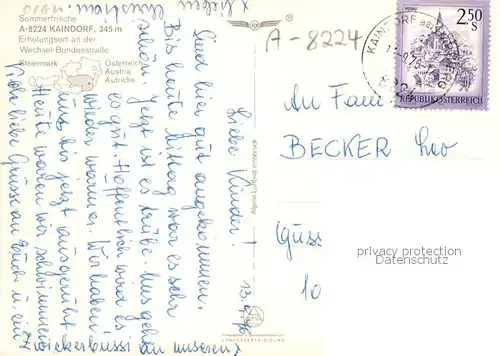 Sommerfrische
A-8224 KAINDORF, 345 m
Erholungsort an der
Wechsel-Bundesstraße
Steiermark
Österreich
Austria
Autriche
A-8224
KAINDORF BEI HARTBERG
2.50 S
REPUBLIK ÖSTERREICH
An Fam.
BECKER Leo
privacy protection
Datenschutz
10
Alpine Luftbild Innsbruck
LANDESVERTEIDIGUNG
Liebe Kinder!
Sind hier gut angekommen.
Bis heute Mittag war es sehr
schön. Jetzt ist es trübe. Uns geht
es gut. Hoffentlich wird es
wieder warm er. Wir haben
uns bis jetzt ausgeruht
Heute waren wir schwimmen
Viele liebe Grüsse an Euch u. ein
Zwickerbussi an unseren